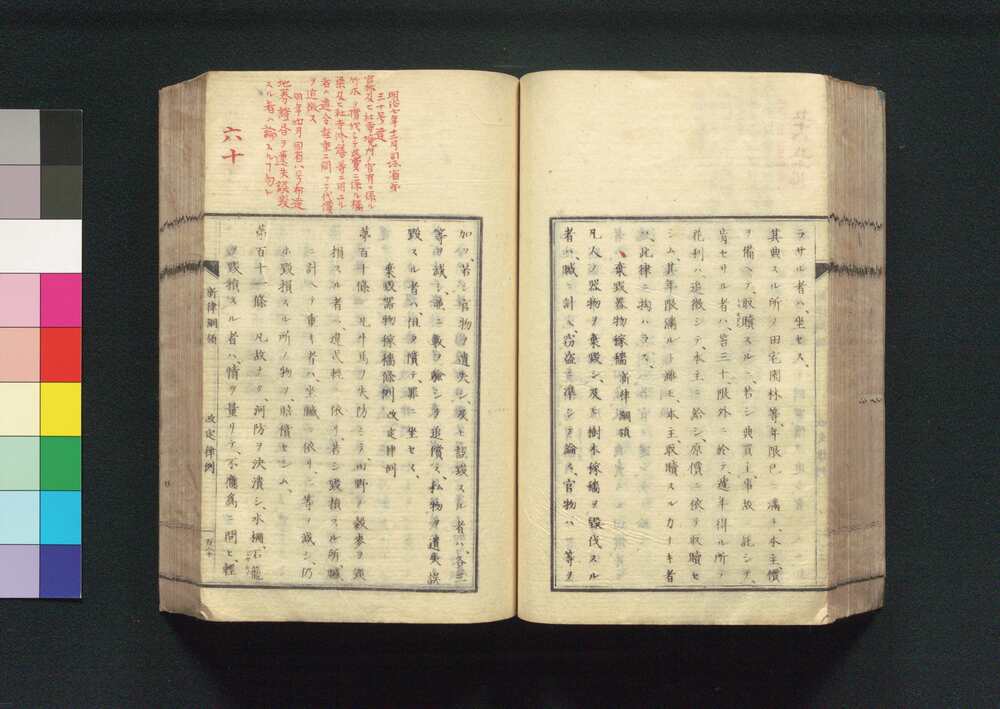 ラサル者ハ、坐セス、
其典スル所ノ田宅園林等、年限已ニ滿チ、本主價
ヲ備ヘテ、取贖スルニ、若シ典買主、事故ニ託シテ、
肯セサル者ハ、笞三十、限外ニ於テ、遞年得ル所ノ
花利ハ、追徴シテ、本主ニ給シ、原價ニ依テ取贖セ
シム、其年限滿ルト雖モ、本主、取贖スル力ナキ者
ハ、此律ニ拘ハラス、
棄毀器物稼穡 新律綱領
凡人ノ器物ヲ棄毀シ、及ヒ樹木稼穡ヲ毀伐スル
者ハ、贓ニ計ヘ、竊盗ニ準シテ論ス、官物ハ、一等ヲ
明治七年十二月司法省第
三十号達
官林及ヒ社寺境内ノ官有ニ係ル
竹木
者ハ
ヲ追徴ス
明年四月同省八号布達
地券證書ヲ遺失誤毀
スル者ハ論スル勿レ
六十
加フ、若シ官物ヲ遺失シ、及ヒ誤毀スル者ハ、各三
等ヲ減シ、並ニ數ヲ驗シテ追償ス、私物ヲ遺失誤
毀スル者ハ、但タ償テ、罪ニ坐セス、
棄毀器物稼穡條例 改定律例
第百十條 凡牛馬ヲ失防シテ、田野ノ穀麥ヲ毀
損スル者ハ、違式輕ニ依リ、若シ毀損スル所、贓
ニ計ヘテ重キ者ハ、坐贓ニ依リ、二等ヲ減シ、仍
ホ毀損スル所ノ物ヲ賠償セシム、
第百十一條 凡故ナク、河防ヲ決潰シ、水柵、石籠
ヲ毀損スル者ハ、情ヲ量リテ、不應爲ニ問ヒ、輕
新律綱領
改定律例